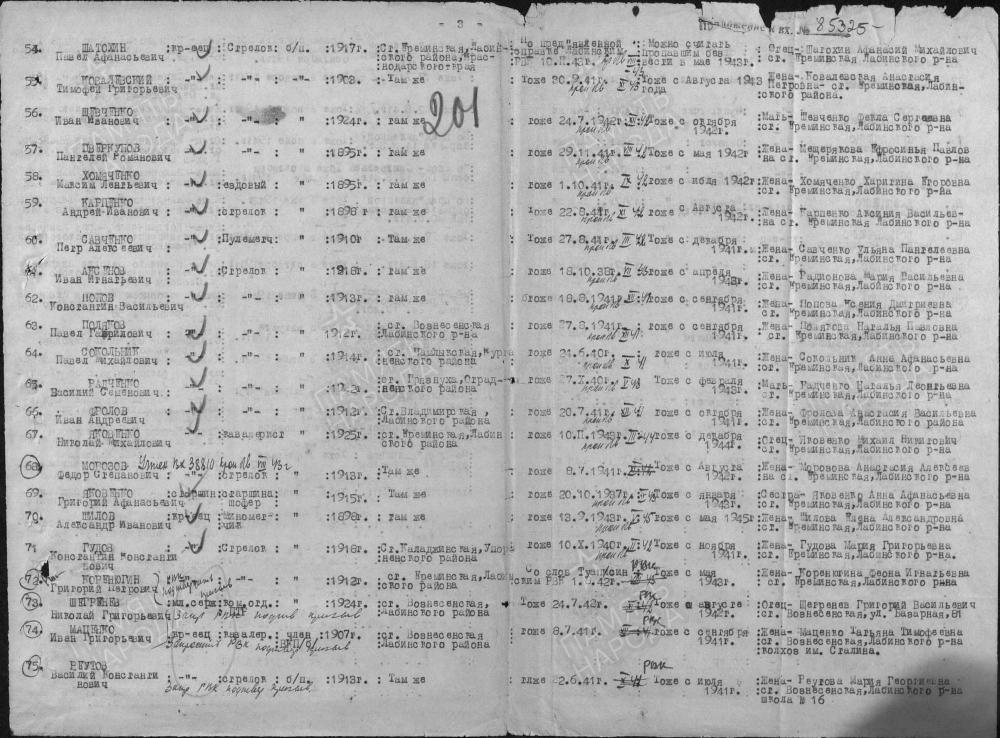 - 3 -
Приложение к вх. № 85325-
201
54. ШАТОХИН :кр-еец :Стрелок: б/п. :1917г: Ст. Еремин­ская, Лабин- :По пред"явленной : Можно считать : Отец- Шатохин Афанасий Михайлович
Павел Афанасьевич: ского района, Крас- справке Лабинским пропавшим без : ст. Ереминская Лабинского р-на
нодарского края РВК 10.П.43г. вести в мае 1943г:
55. КОВАЛЕВСКИЙ : -"- : -"- -"- :1902. : Там же Тоже 20.9.41г. :Тоже с Августа 1943 Жена- Ковалевская Анастасия
Тимофей Григорьевич: года Петровна- ст. Ереминская, Лабин-
ского района.
56 ШЕВЧЕНКО
Иван Иванович : -"- : -"- : " :1924г: там же тоже 24.7.42г :Тоже с октября :Мать- Шевченко Фекла Сергеевна
1942г: ст. Ереминская, Лабинского р-на
57. ЦВЕРКУНОВ
Пантелей Романович : -"- : " :1895г: там же тоже 29.11.41г :Тоже с мая 1942г :Жена- Мещерякова Ефросинья Павлов
на ст. Ереминская, Лабинского р-на
58. ХОМЯЧЕНКО
Максим Ленгьевич : -"- :ездовый : " :1895г: там же тоже 1.10.41г. тоже с июля 1942г:Жена- Хомяченко Харитина Егоровна
: ст. Ереминская, Лабинского р-на
59. КАРПЕНКО
Андрей Иванович : -"- :стрелок : " :1898 г : там же Тоже 22.8.41г. тоже с Августа :Жена- Карпенко Аксиния Васильев-
1942г: на ст. Ереминская Лабинского р-на
60. САВЧЕНКО : -"- :Пулеметч: " :1910г : Там же Тоже 27.8.41г. Тоже с декабря
Петр Алексеевич : 1941г: Жена- Савченко Ульяна Пантелеевна
ст. Ереминская, Лабинского р-на
61. АКСЕНОВ : -"- :Стрелок : " :1918г. : там же : тоже 18.10.38г. тоже с апреля
Иван Игнатьевич : 1943г: Жена- Радионова Мария Васильевна
ст. Ереминская, Лабинского р-на
62. ПОПОВ : -"- : -"- : " :1913г. : там же тоже 18.8.41г. тоже с сентября :Жена- Попова Ксения Дмитриевна
Константин Васильевич 1941г: ст. Ереминская, Лабинского р-на
63. ПОЛЯКОВ : -"- : " :1912г. :ст. Вознесенская : тоже 27.8.41г. : тоже с сентября :Жена- Полякова Наталья Павловна
Павел Гаврилович : :Лабинского р-на 1941г: ст. Ереминская, Лабинского р-на
64. СОКОЛЬНИК : -"- : " :1914г. : ст. Чамлыкская, Курга : тоже 24.6.40г. : тоже с июля :Жена- Сокольник Анна Афанасьевна
Павел Михайлович : ненского района 1941г: ст. Ереминская, Лабинского р-на
65. РАДЧЕНКО : -"- : " :ст. Гривнуха, Отрад- : тоже 27.X.40г. Тоже с февраля Мать- Радченко Наталья Леонтьевна
Василий Семенович: ненского района 1943г: ст. Ереминская, Лабинского р-на
66. ФРОЛОВ : -"- : -"- : " :1912г: Ст. Владимирская, : тоже 20.7.41г. : тоже с октября :Жена- Фролова Анастасия Васильевна
Иван Андреевич : Лабинского района 1941г: ст. Ереминская, Лабинского р-на
67. ЯКОВЕНКО : -"- :кавалерист :1925г: ст. Ереминская, Лабин : тоже 10.П.1943г. тоже с декабря :Отец- Яковенко Михаил Никитович
Николай Михайлович : ского района 1944г: ст. Ереминская, Лабинского р-на
68. МОРОЗОВ Учтен Вх 38810
Федор Степанович : -"- :стрелок : " :1913г. :Там же : тоже 8.7.41г. Тоже с Августа :Жена- Морозова Анастасия Алексеев
1941г: на ст. Ереминская, Лабинского р-на
69. ЯКОВЕНКО :старшин:старшина: " :1915г. : Там же тоже 20.10.1937г. тоже с января :Сестра- Яковенко Анна Афанасьевна
Григорий Афанасьевич : шофер : 1943г: ст. Ереминская, Лабинского р-на
70. ШИЛОВ :кр-еец :миномет-: " :1898г: там же : тоже 13.9.43г. тоже с мая 1945г:Жена- Шилова Елена Александровна
Александр Иванович : чик ст. Ереминская, Лабинского р-на
71 ГУДОВ : -"- :Стрелок : " :1918г. :Ст. Каладжинская, Упор тоже 10.X.1940г. Тоже с ноября :Жена- Гудова Мария Григорьевна
Константин Константи : ненского района 1941г: ст. Ереминская, Лабинского р-на.
нович
72. КОРЕНЮГИН : -"- : " :1912г : ст. Ереминская, Лабин Со слов Туапсин Тоже с мая :Жена- Коренюгина Феона Игнатьевна
Григорий Петрович : ского района ским РВК 1.9.42г. РВК 1943г: ст. Ереминская, Лабинского р-на
73. ШЕГРЕНЕВ :мл.серж:ком.отд.: " :1924г: ст. Вознесенская, Тоже 24.7.42г. РВК Тоже с августа : Отец- Шегренев Григорий Васильевич
Николай Григорьевич Запр РВК подтвер призыв Лабинского района 1942г: ст. Вознесенская, ул. Базарная, 81
74. МАЦЕНКО :кр-еец :кавалер.: член :1907г: ст. Вознесенская тоже 8.7.41г. РВК тоже с сентября :Жена- Маценко Татьяна Тимофеевна
Иван Григорьевич: ВКП/б/ Лабинского района 1941г: ст. Вознесенская, Лабинского р-на
Запросил РВк подтвер призыв колхоз им. Сталина.
75. РЕУТОВ РВК
Василий Константи : -"- :СТРЕЛОК : б/п. :1913г: Там же тоже 22.6.41г. Тоже с июля :Жена- Реутова Мария Георгиевна
нович Запр РВК подтвер призыв 1941г: ст. Вознесенская, Лабинского р-на
школа № 16